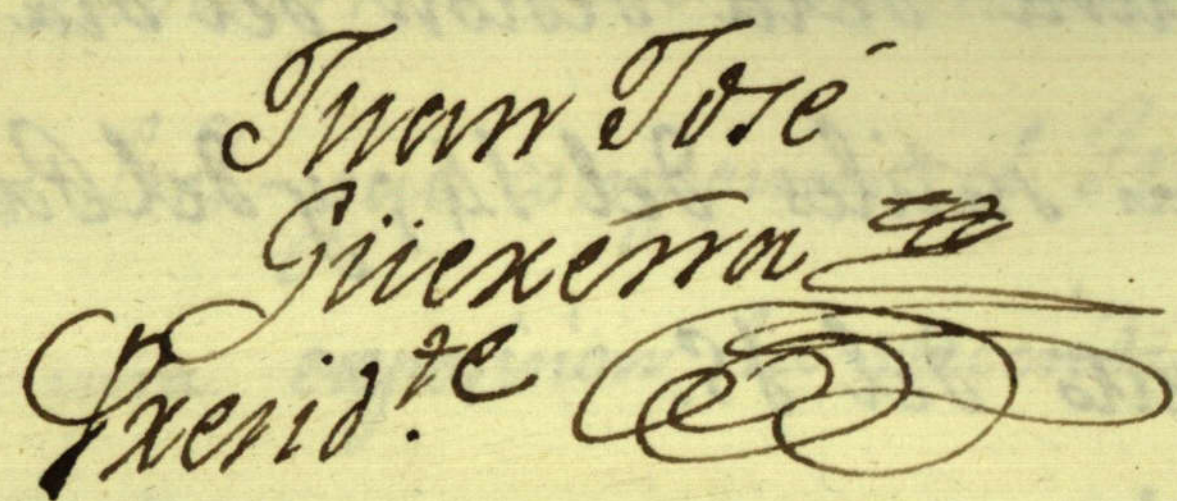 Juan José
Güereña
Presid.te